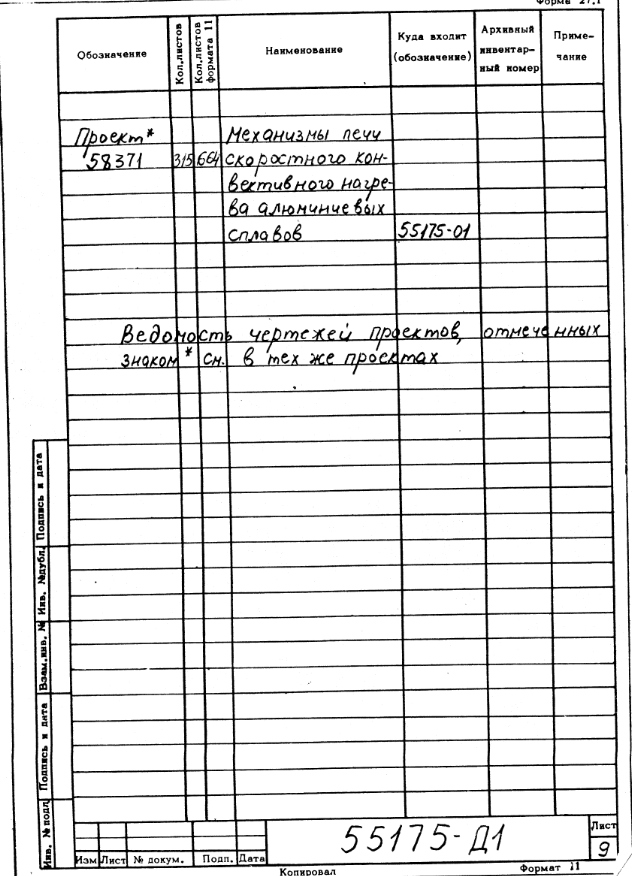 Форма 27.1
Обозначение Кол.листов Кол.листов формата 11 Наименование Куда входит (обозначение) Архивный инвентар-ный номер Приме-чание
Проект* Механизмы печи
58371 315 664 скоростного кон-
вективного нагре-
ва алюминиевых
сплавов 55175-01
Ведомость чертежей проектов, отмеченных
знаком* см. в тех же проектах
Подпись и дата
Инв. №дубл.
Взам.инв. №
Подпись и дата
Инв. № подл
55175-Д1
Лист
9
Изм Лист № докум. Подп. Дата
Копировал Формат 11